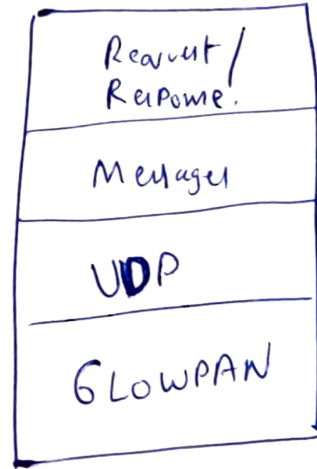 Request/
Response.
Messages
UDP
6LOWPAN